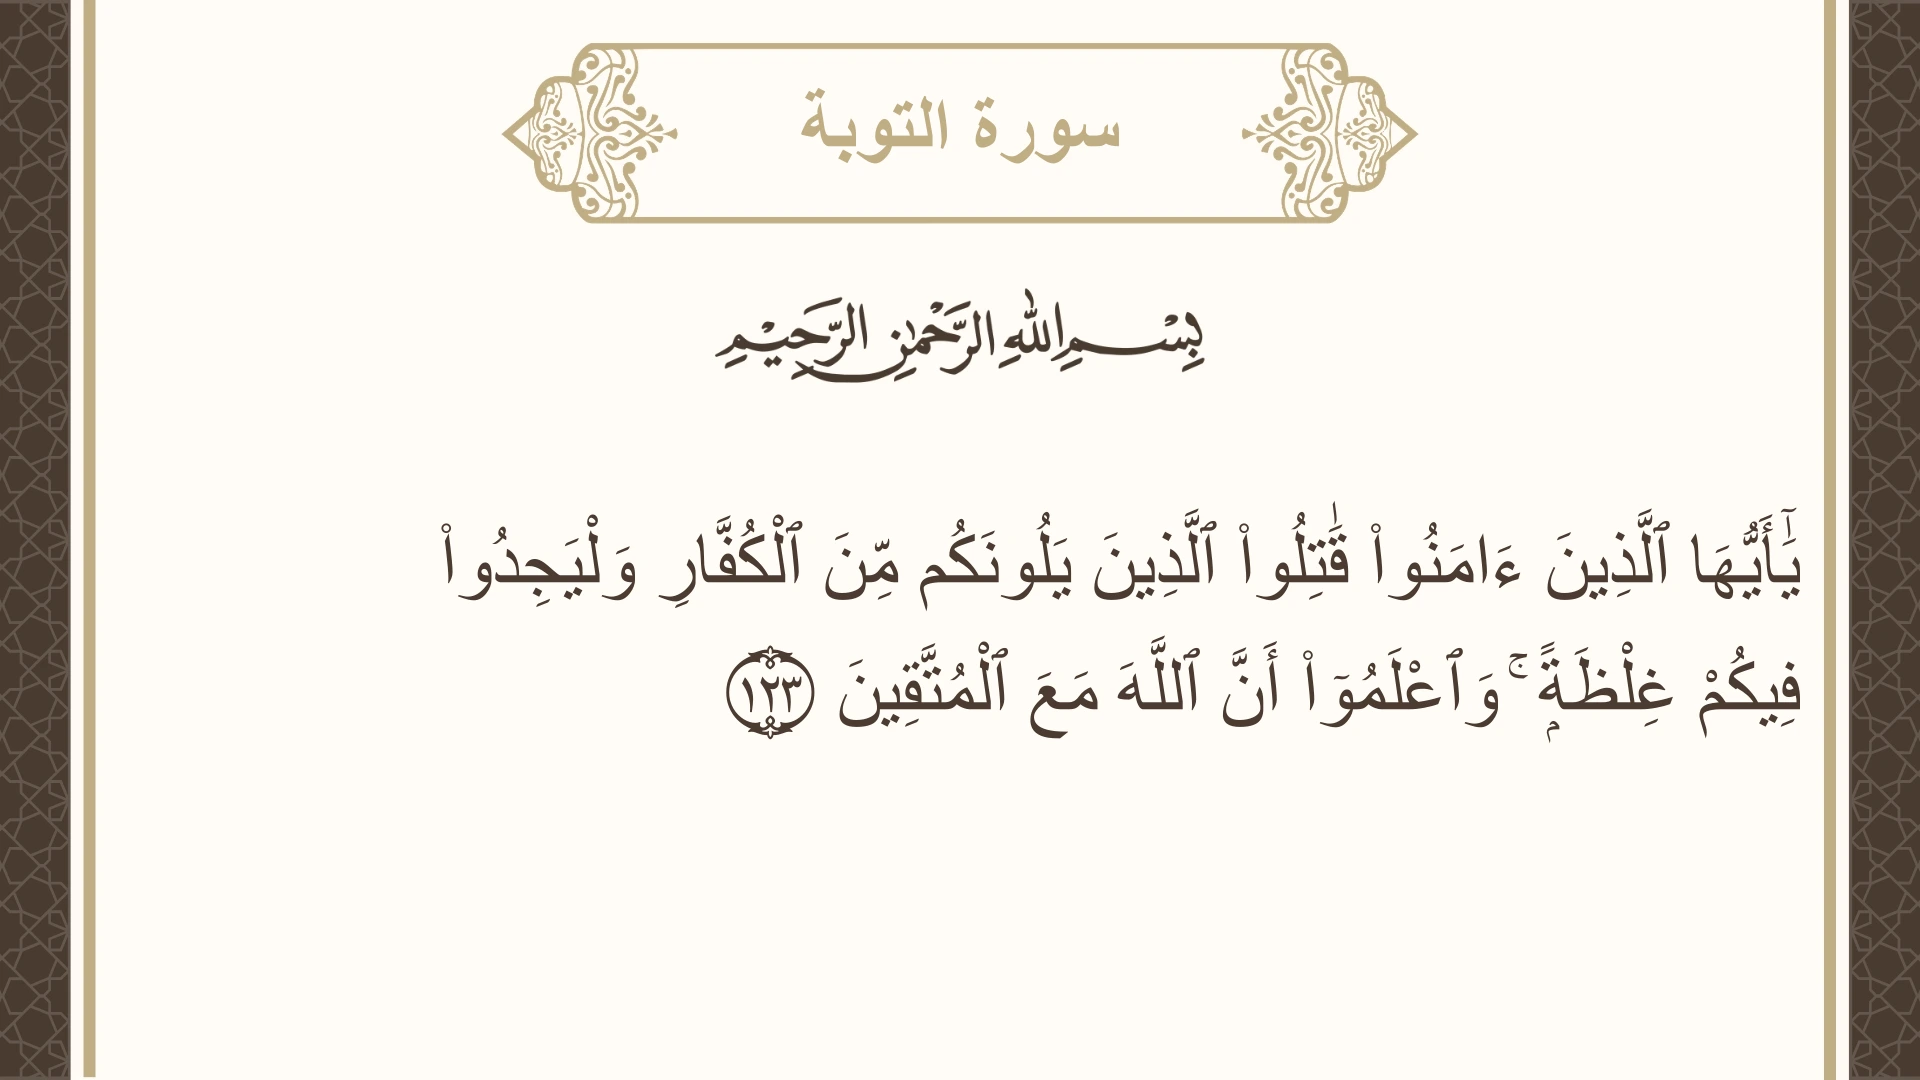 سورة التوبة
بِسْمِ اللهِ الرَّحْمٰنِ الرَّحِيْمِ
يَٰٓأَيُّهَا ٱلَّذِينَ ءَامَنُوا۟ قَٰتِلُوا۟ ٱلَّذِينَ يَلُونَكُم مِّنَ ٱلْكُفَّارِ وَلْيَجِدُوا۟
فِيكُمْ غِلْظَةًۭ ۚ وَٱعْلَمُوٓا۟ أَنَّ ٱللَّهَ مَعَ ٱلْمُتَّقِينَ ١٢٣